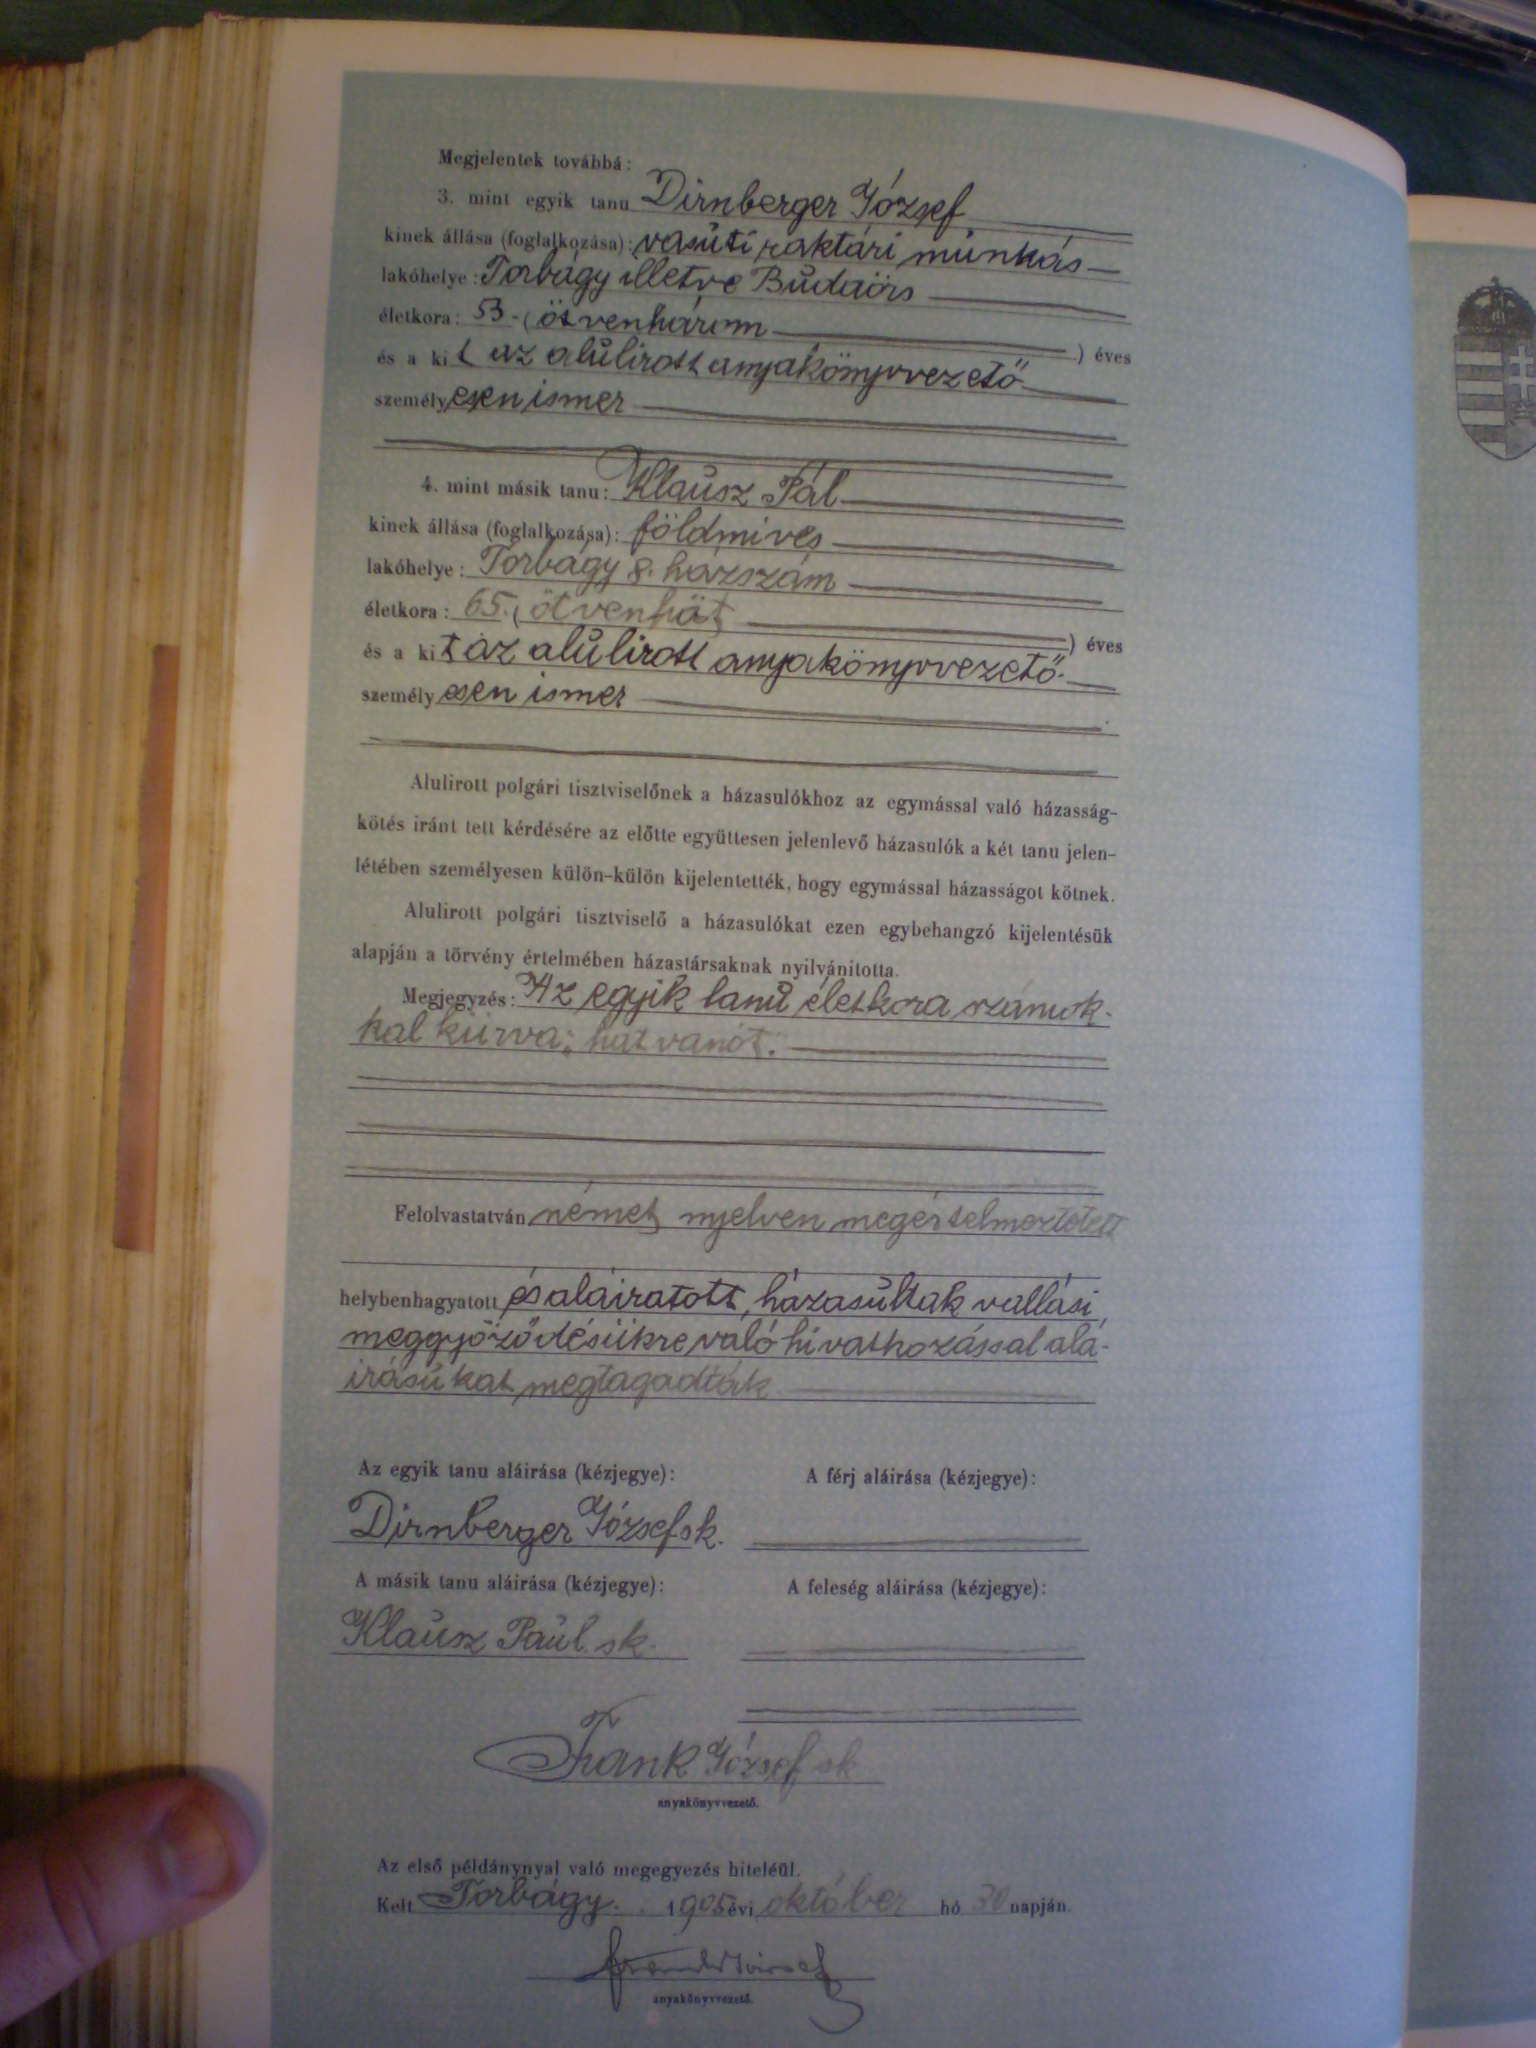 Megjelentek továbbá:
3. mint egyik tanu Dirnberger József
kinek állása (foglalkozása): vasúti raktári munkás
lakóhelye: Torbágy illetve Budaörs
életkora: 53. (ötvenhárom) éves
és a kit az alulirott anyakönyvvezető
személyesen ismer
4. mint másik tanu: Klausz Pál
kinek állása (foglalkozása): földmives
lakóhelye: Torbágy 8. házszám
életkora: 65. (ötvenhat) éves
és a kit az alulirott anyakönyvvezető
személyesen ismer
Alulirott polgári tisztviselőnek a házasulókhoz az egymással való házasság-
kötés iránt tett kérdésére az előtte együttesen jelenlevő házasulók a két tanu jelen-
létében személyesen külön-külön kijelentették, hogy egymással házasságot kötnek.
Alulirott polgári tisztviselő a házasulókat ezen egybehangzó kijelentésük
alapján a törvény értelmében házastársaknak nyilvánitotta.
Megjegyzés: Az egyik tanu életkora számok-
kal kiirva: hatvanöt.
Felolvastatván német nyelven megértelmeztetett
helybenhagyatott és aláiratott, házasultak vallási
meggyőződésükre való hivatkozással alá-
irásukat megtagadták
Az egyik tanu aláirása (kézjegye): A férj aláirása (kézjegye):
Dirnberger József sk.
A másik tanu aláirása (kézjegye): A feleség aláirása (kézjegye):
Klausz Paul. sk.
Frank József sk
anyakönyvvezető.
Az első példánynyal való megegyezés hiteléül.
Kelt Torbágy. 1905 évi október hó 30 napján.
anyakönyvvezető.